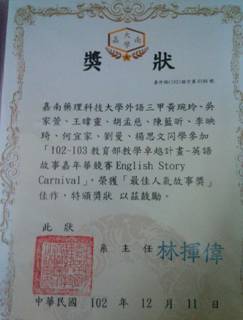 嘉 大學 南
獎狀
嘉南藥理科技大學外語三甲黃琬玲、吳
家萱、王暐童、胡孟恩、陳藍昕、李映
琦、何宜家、劉曼、楊思文同學參加
「102-103教育部教學卓越計畫-英語
故事嘉年華競賽English Story
Carnival」,榮獲「最佳人氣故事獎」
佳作,特頒獎狀 以茲鼓勵。
此狀
系主任 林揮偉
中華民國 102 年 12 月 11 日